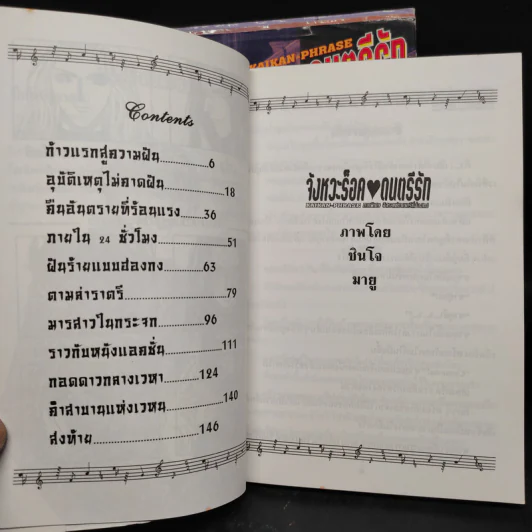 KAIKAN-PHRASE
ดนตรีรัก
Contents
ก้าวแรกสู่ความฝัน 6
อุบัติเหตุไม่คาดฝัน 18
คืนอันตรายที่ร้อนแรง 36
ภายใน 24 ชั่วโมง 51
ฝันร้ายแบบฮ่องกง 63
ตามล่าราตรี 79
มารสาวในกระจก 96
ราวกับหนังแอคชั่น 111
กอดดาวกลางเวหา 124
คำสาบานแห่งเวหน 140
ส่งท้าย 146
จังหวะร็อค♥ดนตรีรัก
KAIKAN-PHRASE
ภาพโดย
ชินโจ
มายู